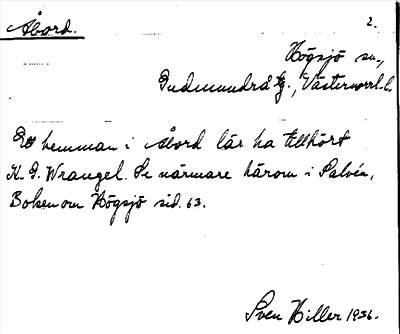 Åbord.
2.
Högsjö sn.,
Gudmundrå tg., Västernorrl. l.
Ett hemman i Åbord lär ha tillhört
K. G. Wrangel. Se närmare härom i Salvén,
Boken om Högsjö sid. 63.
Sven Hiller 1956.